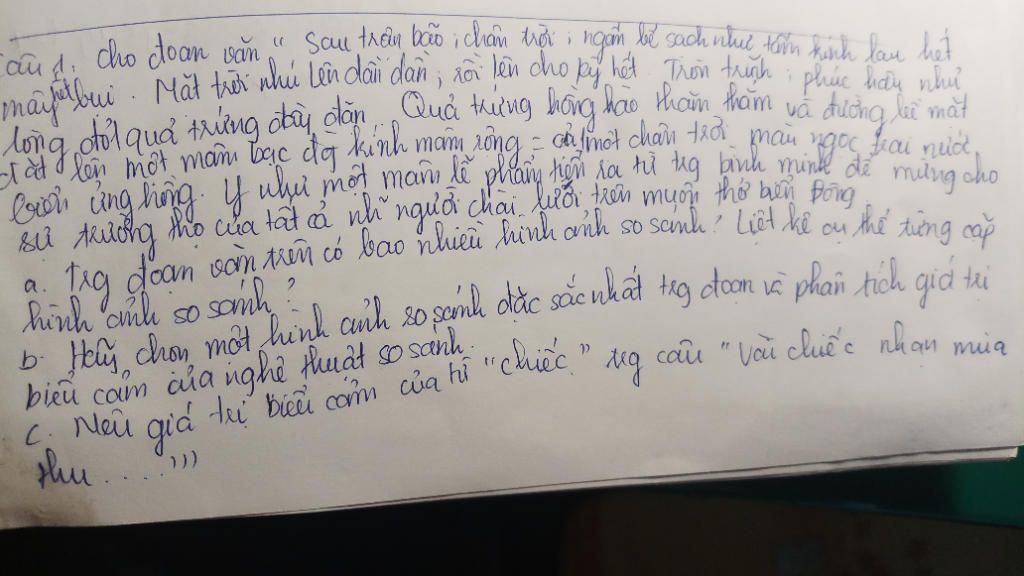 câu 1. Cho đoạn văn " Sau trận bão, chân trời, ngấn bể sạch như tấm kính lau hết
mây hết bụi. Mặt trời nhú lên dần dần, rồi lên cho kỳ hết. Tròn trĩnh, phúc hậu như
lòng đỏ quả trứng đầy đặn. Quả trứng hồng hào thăm thẳm và đường bệ mặt
đặt lên một mâm bạc đg kính mâm rộng = cả một chân trời màu ngọc trai nước
biển ửng hồng. Y như một mâm lễ phẩm tiến ra từ trg bình minh để mừng cho
sự trường thọ của tất cả nh~ người chài lưới trên muôn thở biển Đông
a. Trg đoạn văn trên có bao nhiêu hình ảnh so sánh? Liệt kê cụ thể từng cặp
hình ảnh so sánh?
b. Hãy chọn một hình ảnh so sánh đặc sắc nhất trg đoạn và phân tích giá trị
biểu cảm của nghệ thuật so sánh.
c. Nêu giá trị biểu cảm của từ "chiếc" trg câu "Vài chiếc nhạn mùa
thu ....."